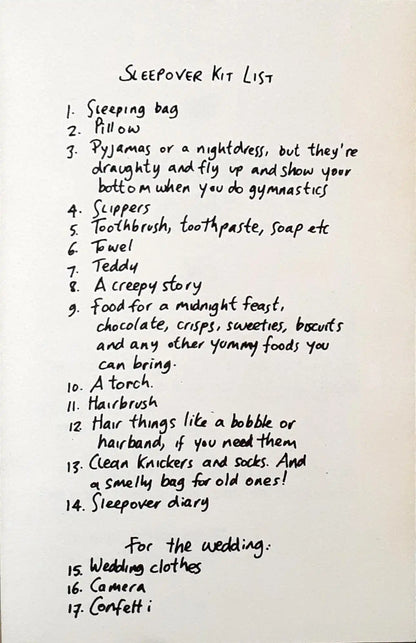 SLEEPOVER KIT LIST
1. Sleeping bag
2. Pillow
3. Pyjamas or a nightdress, but they're
draughty and fly up and show your
bottom when you do gymnastics
4. Slippers
5. Toothbrush, toothpaste, soap etc
6. Towel
7. Teddy
8. A creepy story
9. Food for a midnight feast,
chocolate, crisps, sweeties, biscuits
and any other yummy foods you
can bring.
10. A torch.
11. Hairbrush
12 Hair things like a bobble or
hairband, if you need them
13. Clean knickers and socks. And
a smelly bag for old ones!
14. Sleepover diary
For the wedding:
15. Wedding clothes
16. Camera
17. Confetti